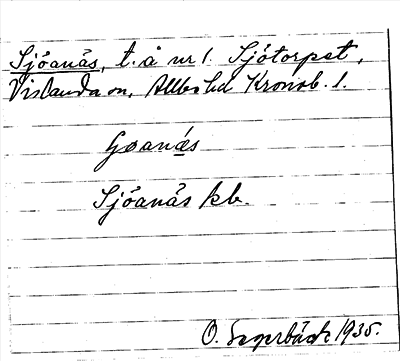 Sjöanäs, t. å nr 1. Sjötorpet,
Vislanda sn, Allbo hd Kronob. l.
Goanäs
Sjöanäs kb.
O. Segerbäck 1935.